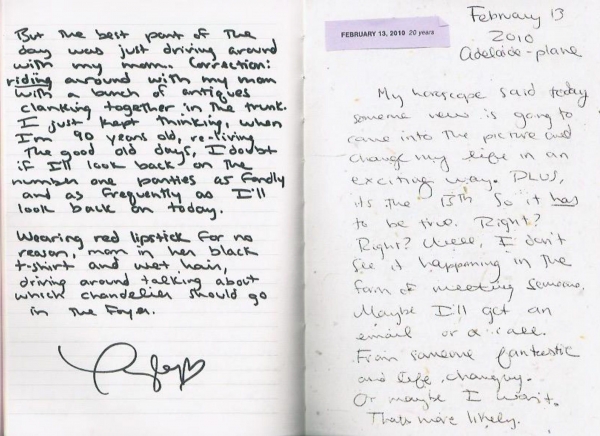 But the best part of the
day was just driving around
with my mom. Correction:
riding around with my mom
with a bunch of antiques
clanking together in the trunk.
I just kept thinking, when
I'm 90 years old, re-living
the good old days, I doubt
if I'll look back on the
number one parties as fondly
and as frequently as I'll
look back on today.
Wearing red lipstick for no
reason, mom in her black
t-shirt and wet hair,
driving around talking about
which chandelier should go
in the foyer.
FEBRUARY 13, 2010 20 years
February 13
2010
Adelaide - plane
My horoscope said today
someone new is going to
come into the picture and
change my life in an
exciting way. PLUS,
it's the 13th so it has
to be true. Right?
Right? Well, I don't
see it happening in the
form of meeting someone.
Maybe I'll get an
email or a call.
From someone fantastic
and life changing.
Or maybe I won't.
That's more likely.